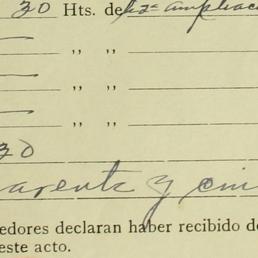 30 Hts. de la 2ª ampliac
— „ „
— „ „
— „ „
30
arenta y cin
edores declaran haber recibido d
este acto.